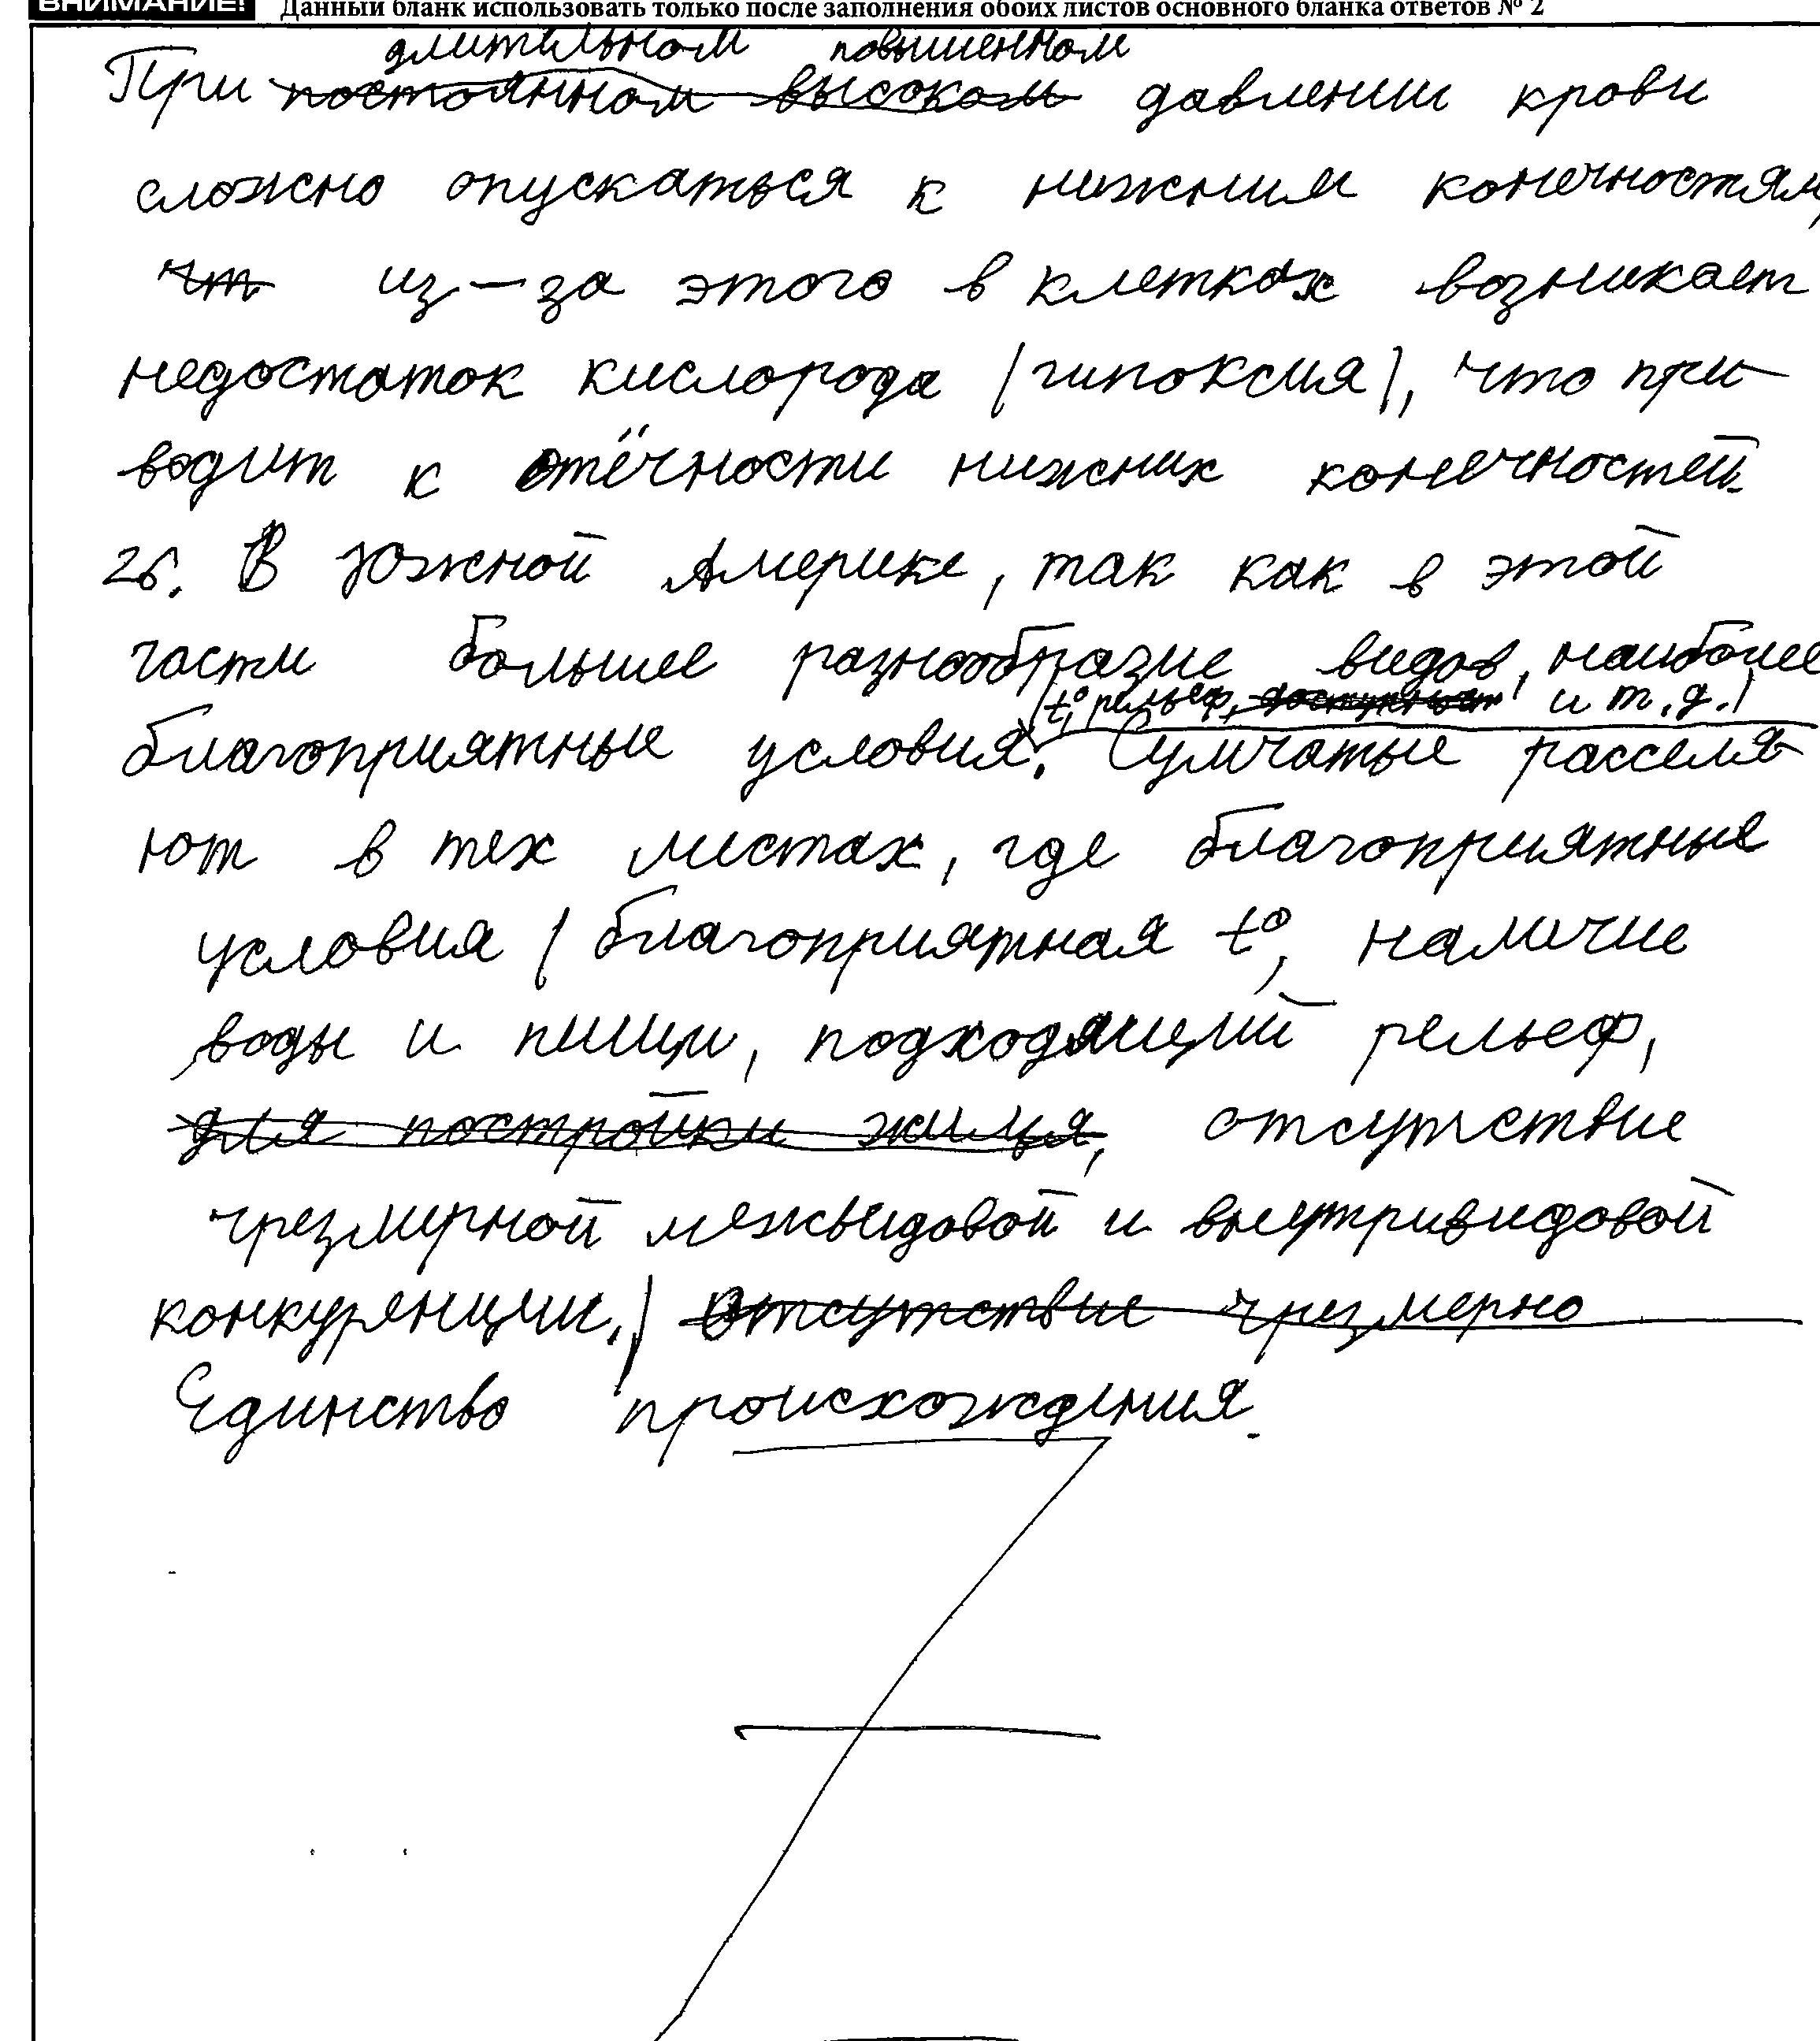 ВНИМАНИЕ! Данный бланк использовать только после заполнения обоих листов основного бланка ответов № 2
длительном повышенном
При постоянном высоком давлении крови
сложно опускаться к нижним конечностям,
чт из-за этого в клетках возникает
недостаток кислорода (гипоксия), что при-
водит к отёчности нижних конечностей.
26. В Южной Америке, так как в этой
части большее разнообразие видов, наиболее
(t°, рельеф, и т.д.)
благоприятные условия. Сумчатые расселя-
ют в тех местах, где благоприятные
условия (благоприятная t°, наличие
воды и пищи, подходящий рельеф,
для постройки жилья, отсутствие
чрезмерной межвидовой и внутривидовой
конкуренции.) Отсутствие чрезмерно
Единство происхождения.